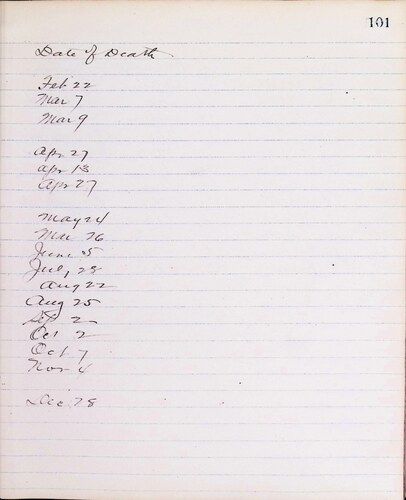 101
Date of Death
Feb 22
Mar 7
Mar 9
Apr 27
Apr 13
Apr 27
May 24
Mar 26
June 5
July 28
Aug 22
Aug 25
Sep 2
Oct 2
Oct 7
Nov 4
Dec 28